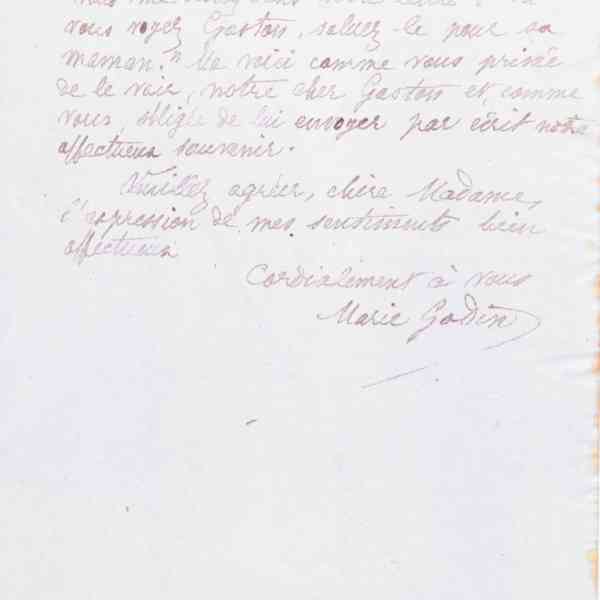 vous voyez Gaston, saluez-le pour sa
maman." Me voici comme vous privée
de le voir, notre cher Gaston et, comme
vous, obligée de lui envoyer par écrit notre
affectueux souvenir.
Veuillez agréer, chère Madame,
l'expression de mes sentiments bien
affectueux
Cordialement à vous
Marie Godin